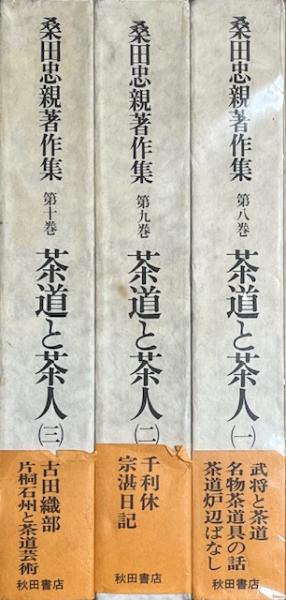 桑田忠親著作集
第八巻
茶道と茶人
(一)
武将と茶道
名物茶道具の話
茶道炉辺ばなし
秋田書店
桑田忠親著作集
第九巻
茶道と茶人
(二)
千利休
宗湛日記
秋田書店
桑田忠親著作集
第十巻
茶道と茶人
(三)
古田織部
片桐石州と茶道芸術
秋田書店